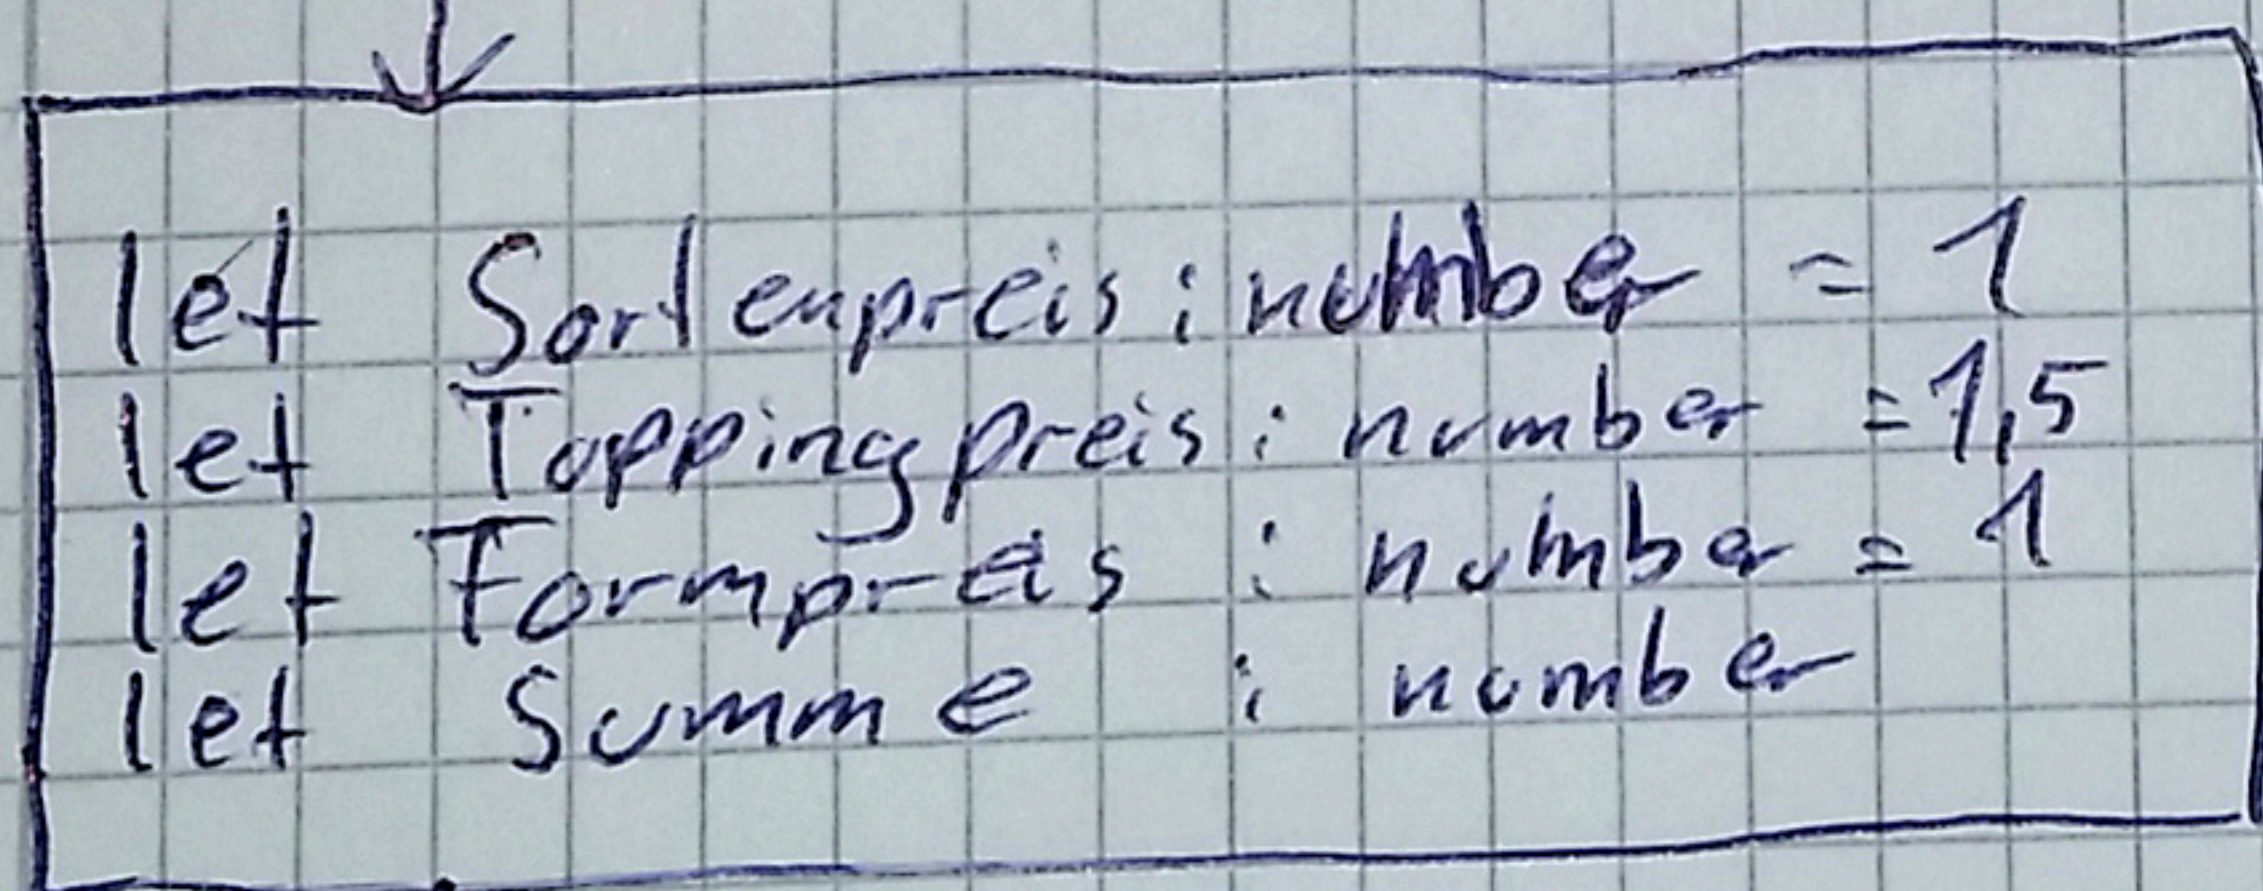 let Sortenpreis : number = 1
let Toppingpreis : number = 1,5
let Formpreis : number = 1
let Summe : number